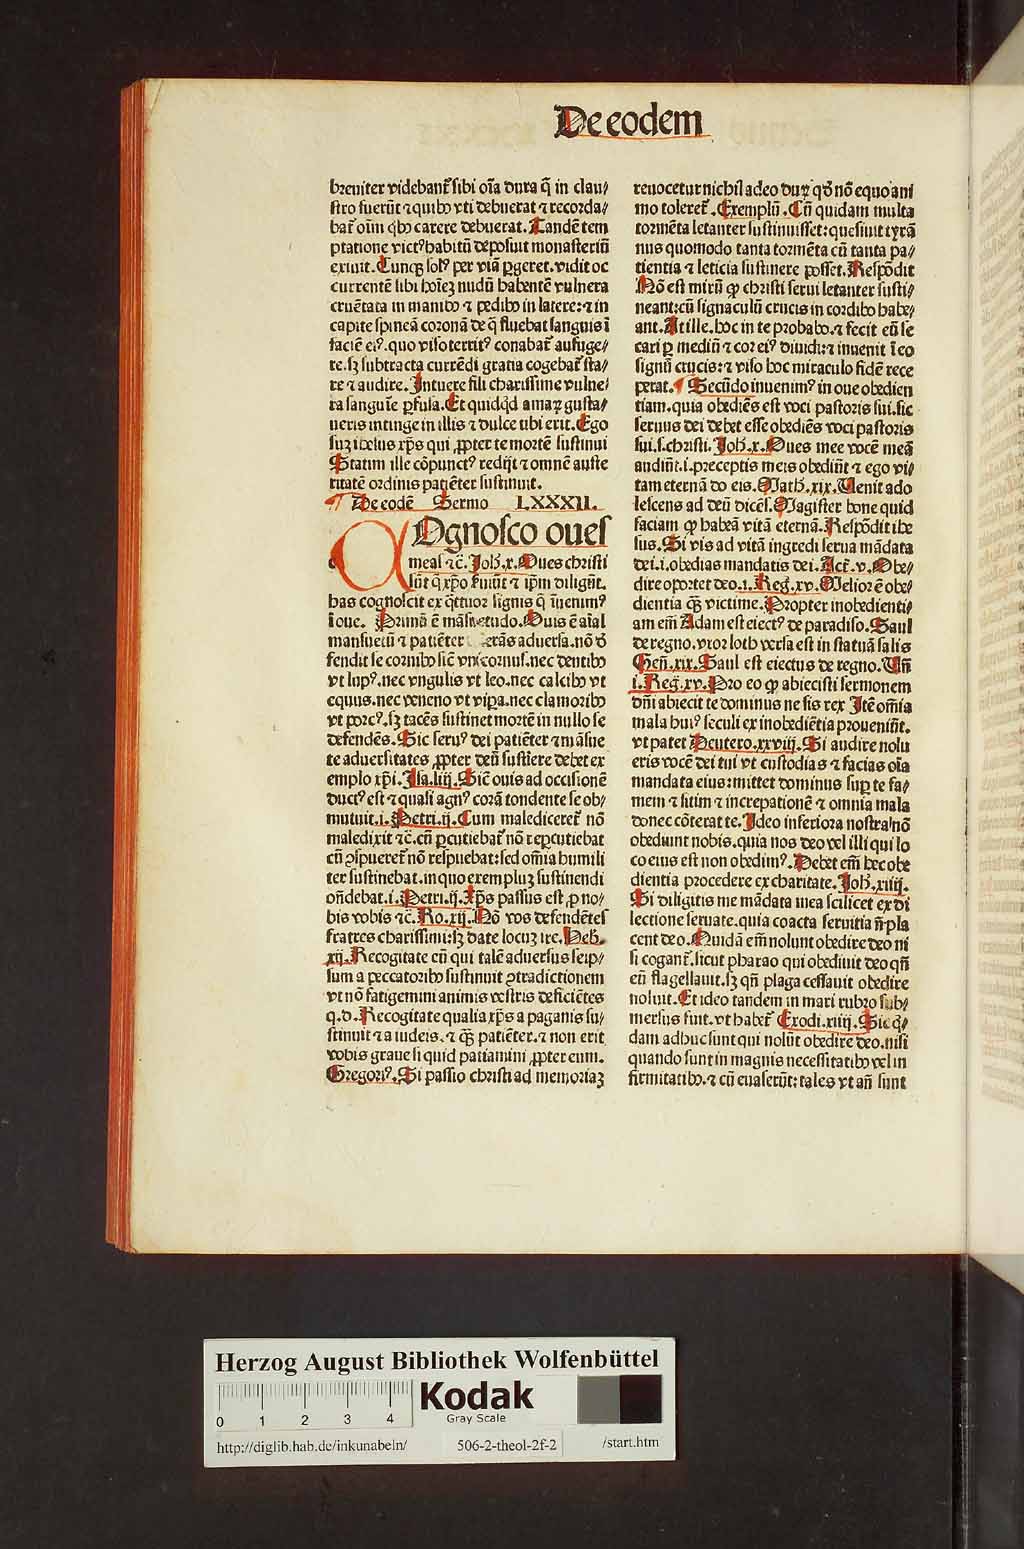 De eodem
breuiter videbant᷑ sibi oı̄a dura q̄ in clau⸗
stro fuerūt ⁊ quibꝰ vti debuerat ⁊ recorda⸗
bat᷑ oı̄m qͥbꝰ carere debuerat. Tandē tem
ptatione victꝰ habitū deposuit monasteriū
exiuit. Cunqꝫ solꝰ per viā ꝑgeret. vidit oc
currentē sibi hoı̄eꝫ nudū habentē vulnera
cruētata in manibꝰ ⁊ pedibꝰ in latere: ⁊ in
capite spineā coronā de q̄ fluebat sanguis ī
faciē eiꝰ. quo viso territꝰ conabat᷑ aufuge⸗
re. sꝫ subtracta currēdi gratia cogebat᷑ sta⸗
re ⁊ audire. Intuere fili charissime vulne⸗
ra sanguīe ꝑfusa. Et quidqͥd amaꝝ gusta⸗
ueris intinge in illis ⁊ dulce tibi erit. Ego
suꝫ iħesus xp̄s qui ꝓpter te mortē sustinui
Statim ille cōpunctꝰ redijt ⁊ omnē auste
ritatē ordinis patiēter sustinuit.
¶ De eodē Sermo LXXXII.
COgnosco oues
meas ⁊c̄. Joħ. x. Oues christi
sūt q̄ xp̄o ẜuiūt ⁊ ip̄m diligūt.
has cognoscit ex qͣttuor signis q̄ īuenimꝰ
ī oue. Primū ē māsuetudo. Ouis ē aı̄al
mansuetū ⁊ patiēter aduersa. nō d̄
fendit se cornibꝰ sic̄ vnicornus. nec dentibꝰ
vt lupꝰ. nec vngulis vt leo. nec calcibꝰ vt
equus. nec veneno vt viꝑa. nec clamoribꝰ
vt porcꝰ. sꝫ tacēs sustinet mortē in nullo se
defendēs. Sic seruꝰ dei patiēter ⁊ māsue
te aduersitates ꝓpter deū sustīere debet ex
emplo xp̄i. Isa. liij. Sic̄ ouis ad occisionē
ductꝰ est ⁊ quasi agnꝰ corā tondente se ob⸗
mutuit. i. Petri. ij. Cum malediceret᷑ nō
maledixit ⁊c̄. cū ꝑcutiebat᷑ nō reꝑcutiebat
cū ꝯspueret᷑ nō respuebat: sed om̄ia humili
ter sustinebat. in quo exempluꝫ sustinendi
on̄debat. i. Petri. ij. Xp̄s passus est ꝓ no⸗
bis vobis ⁊c̄. Ro. xij. Nō vos defendētes
fratres charissimi: sꝫ date locuꝫ ire. Heb.
xij. Recogitate eū qui talē aduersus seip⸗
sum a peccatoribꝰ sustinuit ꝯtradictionem
vt nō fatigemini animis vestris deficiētes
q. d. Recogitate qualia xp̄s a paganis su⸗
stinuit ⁊ a iudeis. ⁊ qꝫ patiēter. ⁊ non erit
vobis graue si quid patiamini ꝓpter eum.
Gregoriꝰ. Si passio christi ad memoriaꝫ
reuocetur nichil adeo duꝝ qd̓ nō equo ani
mo toleret᷑. Exemplū. Cū quidam multa
tormēta letanter sustinuisset: quesiuit tyrā
nus quomodo tanta tormēta cū tanta pa⸗
tientia ⁊ leticia sustinere posset. Respōdit
Nō est mirū ꝙ christi serui letanter susti⸗
neant: cū signaculū crucis in cordibꝰ habe⸗
ant. At ille. hoc in te probabo. ⁊ fecit eū se
cari ꝑ mediū ⁊ cor eiꝰ diuidi: ⁊ inuenit ī eo
signū crucis: ⁊ viso hoc miraculo fidē rece
perat. ¶ Secūdo inuenimꝰ in oue obedien
tiam. quia obediēs est voci pastoris sui. sic
seruus dei debet esse obediēs voci pastoris
sui. s. christi. Joħ. x. Oues mee vocē meā
audiūt. i. preceptis meis obediūt ⁊ ego vi⸗
tam eternā do eis. Math. xix. Uenit ado
lescens ad deū dicēs. Magister bone quid
faciam ꝙ habeā vitā eternā. Respōdit ihe
sus. Si vis ad vitā ingredi serua mādata
dei. i. obedias mandatis dei. Act. v. Obe⸗
dire oportet deo. i. Reg. xv. Melior ē obe⸗
dientia qꝫ victime. Propter inobedienti⸗
am em̄ Adam est eiectꝰ de paradiso. Saul
de regno. vxor loth versa est in statuā salis
Gen̄. xix. Saul est eiectus de regno. Un̄
i. Reg. xv. Pro eo ꝙ abiecisti sermonem
dn̄i abiecit te dominus ne sis rex Itē om̄ia
mala huiꝰ seculi ex inobediētia proueniūt.
vt patet Deutero. xxviij. Si audire nolu
eris vocē dei tui vt custodias ⁊ facias oı̄a
mandata eius: mittet dominus suꝑ te fa⸗
mem ⁊ sitim ⁊ increpationē ⁊ omnia mala
donec cōterat te. Ideo inferiora nostra nō
obediunt nobis. quia nos deo vel illi qui lo
co eius est non obedimꝰ. Debet em̄ hec obe
dientia procedere ex charitate. Joħ. xiiij.
Si diligitis me mādata mea scilicet ex di
lectione seruate. quia coacta seruitia nō pla
cent deo. Quidā em̄ nolunt obedire deo ni
si cogant᷑. sicut pharao qui obediuit deo qn̄
eū flagellauit. sꝫ qn̄ plaga cessauit obedire
noluit. Et ideo tandem in mari rubro sub⸗
mersus fuit. vt habet᷑ Exodi. xiiij. Sic qͥ⸗
dam adhuc sunt qui nolūt obedire deo. nisi
quando sunt in magnis necessitatibꝰ vel in
firmitatibꝰ. ⁊ cū euaserūt: tales vt an̄ sunt
Herzog August Bibliothek Wolfenbüttel
Kodak
Gray Scale
0 1 2 3 4
http://diglib.hab.de/inkunabeln/ 506-2-theol-2f-2 /start.htm